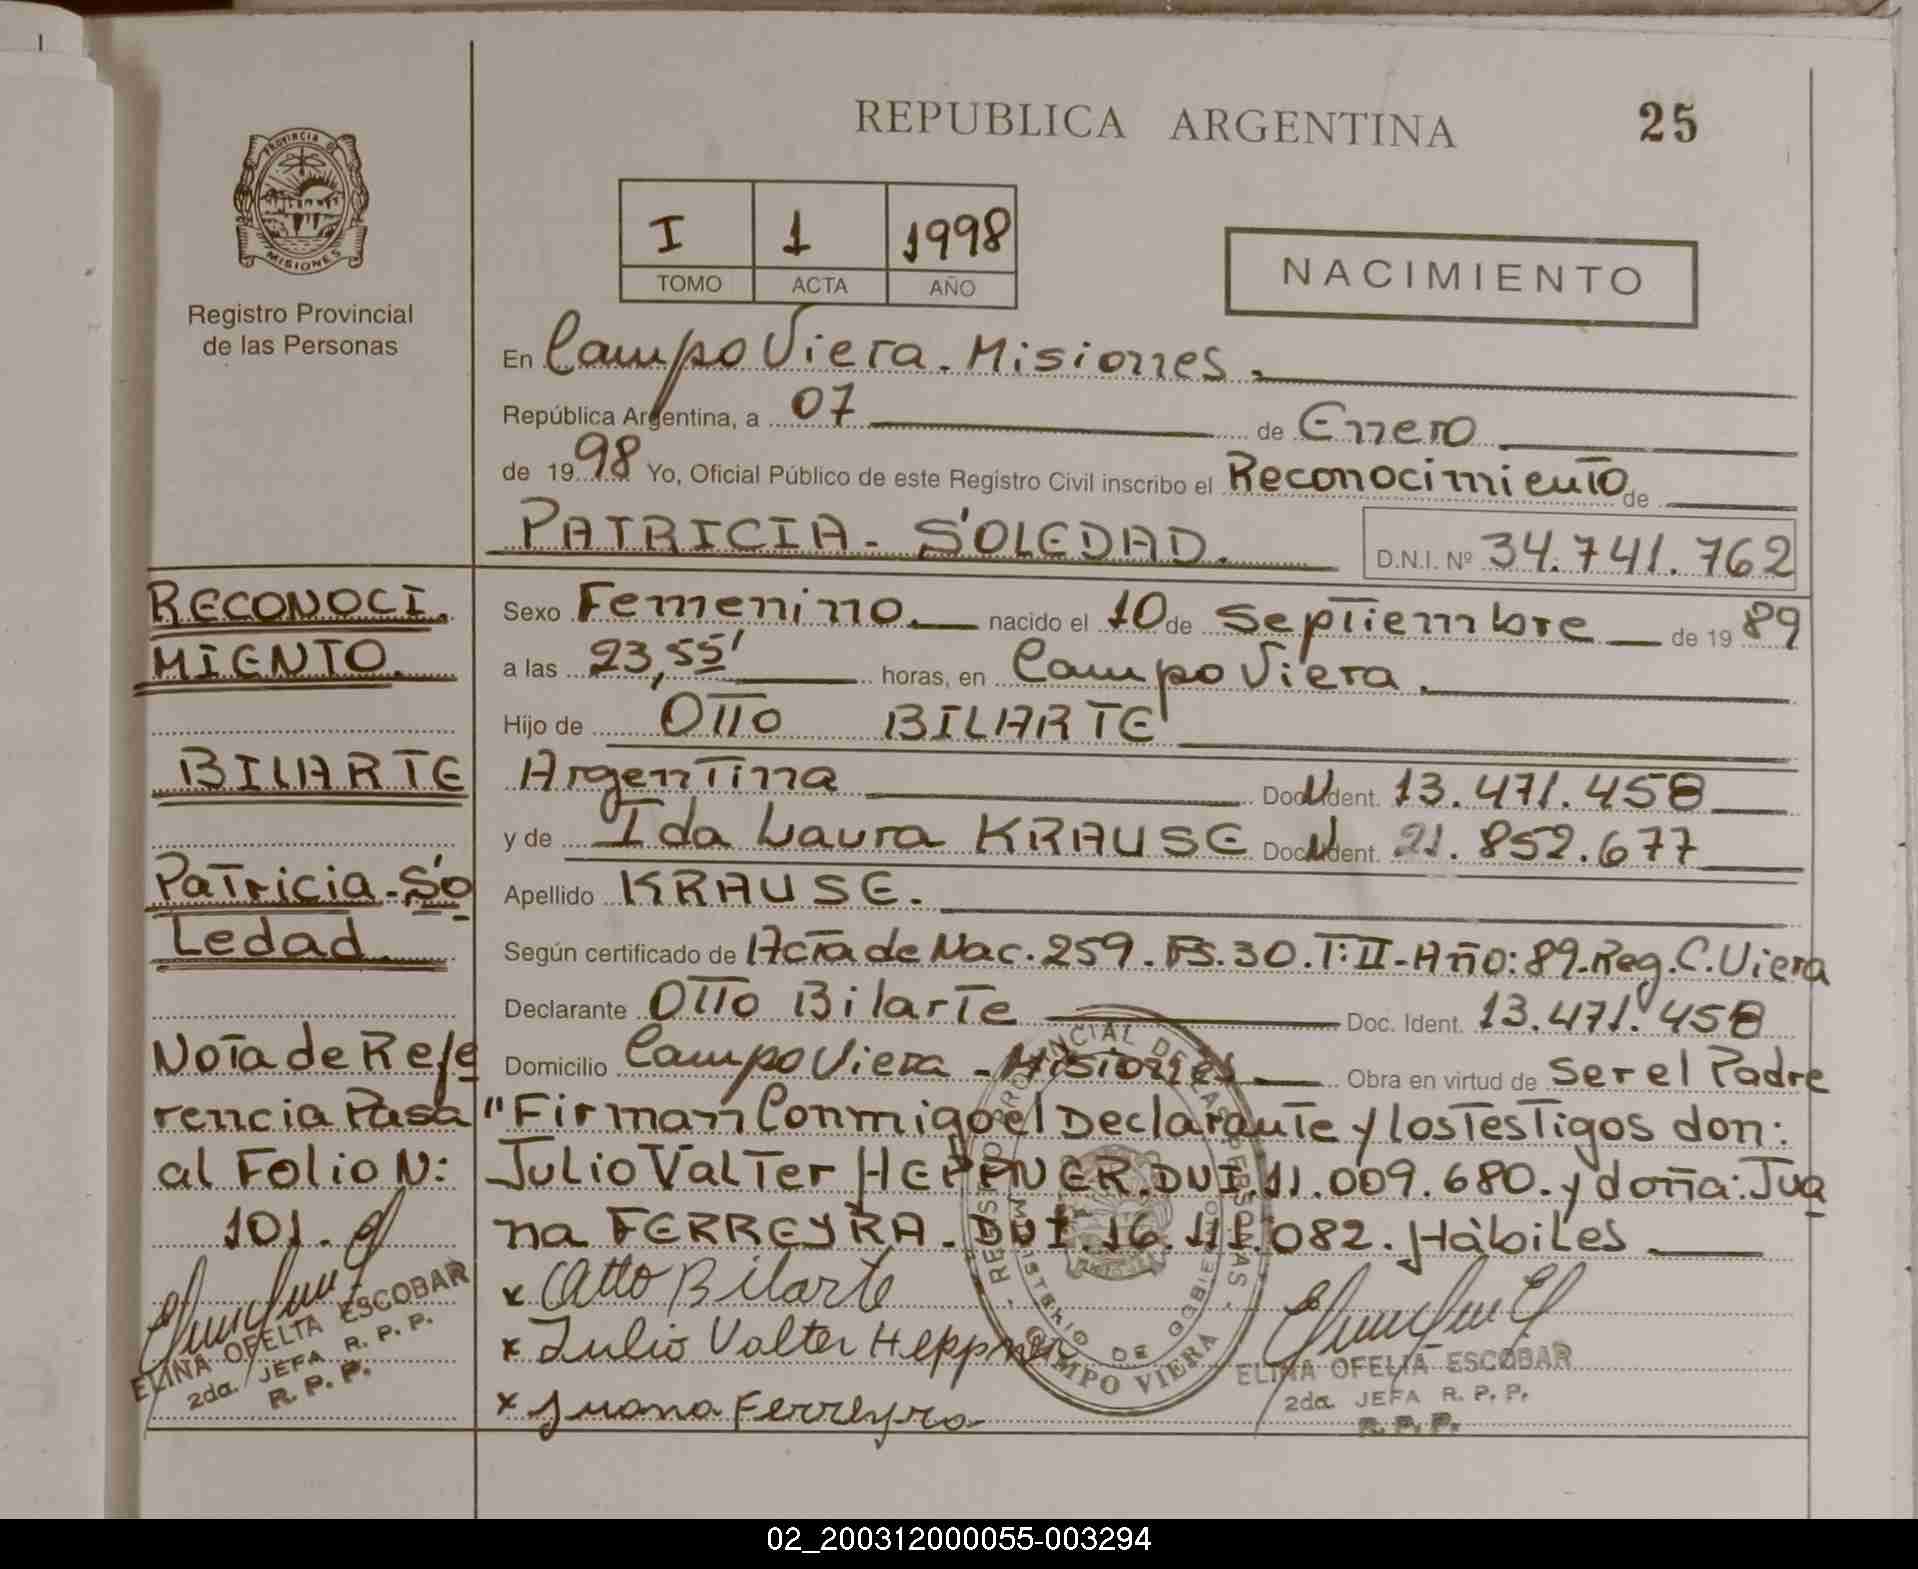 REPUBLICA ARGENTINA
25
PROVINCIA DE
MISIONES
Registro Provincial
de las Personas
I 1 1998
TOMO ACTA AÑO
NACIMIENTO
En Campo Viera. Misiones.
República Argentina, a 07 de Enero
de 1998 Yo, Oficial Público de este Registro Civil inscribo el Reconocimiento de
PATRICIA - SOLEDAD. D.N.I. Nº 34.741.762
RECONOCI.
MIENTO.
BILARTE
Patricia-So
Ledad
Nota de Refe
rencia Pasa
al Folio N:
101.
ELINA OFELIA ESCOBAR
2da. JEFA R. P. P.
R. P. P.
Sexo Femenino. nacido el 10 de Septiembre de 1989
a las 23,55' horas, en Campo Viera.
Hijo de OTTO BILARTE
Argentina Doc. Ident. 13.471.458
y de Ida Laura KRAUSE Doc. Ident. 21.852.677
Apellido KRAUSE.
Según certificado de Acta de Nac. 259. Fs. 30. T: II - Año: 89 - Reg. C. Viera
Declarante Otto Bilarte Doc. Ident. 13.471.458
Domicilio Campo Viera - Misiones Obra en virtud de Ser el Padre
"Firman Conmigo el Declarante y los Testigos don:
Julio Valter HEPPNER. DNI. 11.009.680. y doña: Jua
na FERREYRA - DNI. 16.111.082. Hàbiles
x Otto Bilarte
x Julio Valter Heppner
x Juana Ferreyra
REGISTRO PROVINCIAL DE LAS PERSONAS
MINISTERIO DE GOBIERNO
CAMPO VIERA
ELINA OFELIA ESCOBAR
2da. JEFA R. P. P.
R. P. P.
02_200312000055-003294